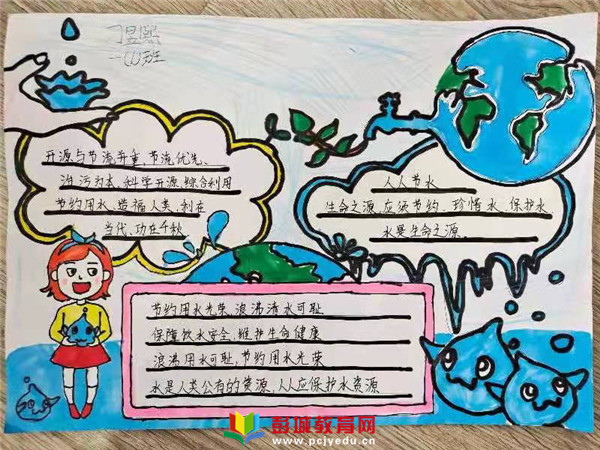 丁昱熙
一(1)班
开源与节流并重,节流优先、
治污为本,科学开源,综合利用
节约用水,造福人类,利在
当代、功在千秋
人人节水
生命之源,应须节约,珍惜水,保护水
水是生命之源、
节约用水光荣,浪沸清水可耻
保障饮水安全,维护生命健康
浪沸用水可耻,节约用水光荣
水是人类公有的资源,人人应保护水资源
彭城教育网
www.pcjyedu.cn